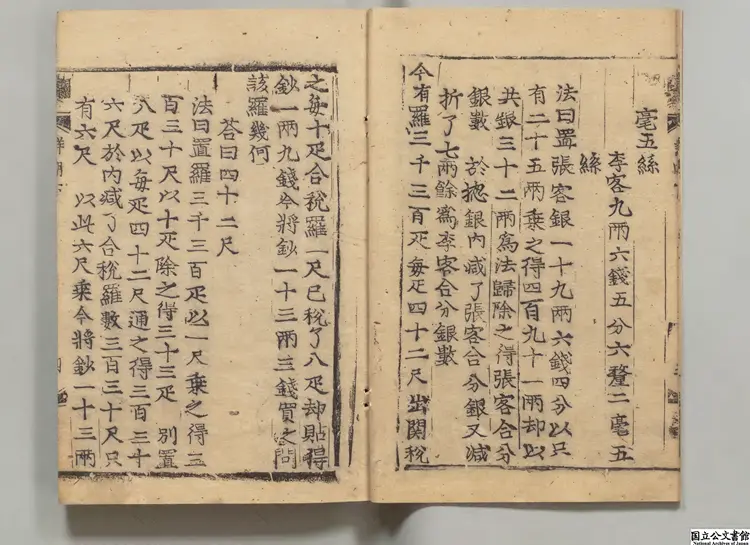 毫五絲
李客九兩六錢五分六釐二毫五
絲
法曰置張客銀一十九兩六錢四分以只
有二十五兩乘之得四百九十一兩却以
共銀三十二兩為法歸除之得張客合分
銀數 於揔銀內減了張客合分銀又減
折了七兩餘為李客合分銀數
今有羅三千三百疋每疋四十二尺出関稅
之每十疋合稅羅一尺已稅了八疋却貼得
鈔一兩九錢今將鈔一十三兩三錢買之問
該羅幾何
荅曰四十二尺
法曰置羅三千三百疋以一尺乘之得三
百三十尺以十疋除之得三十三疋 別置
八疋以每疋四十二尺通之得三百三十
六尺於內減了合稅羅數三百三十尺只
有六尺 以此六尺乘今將鈔一十三兩
国立公文書館
National Archives of Japan